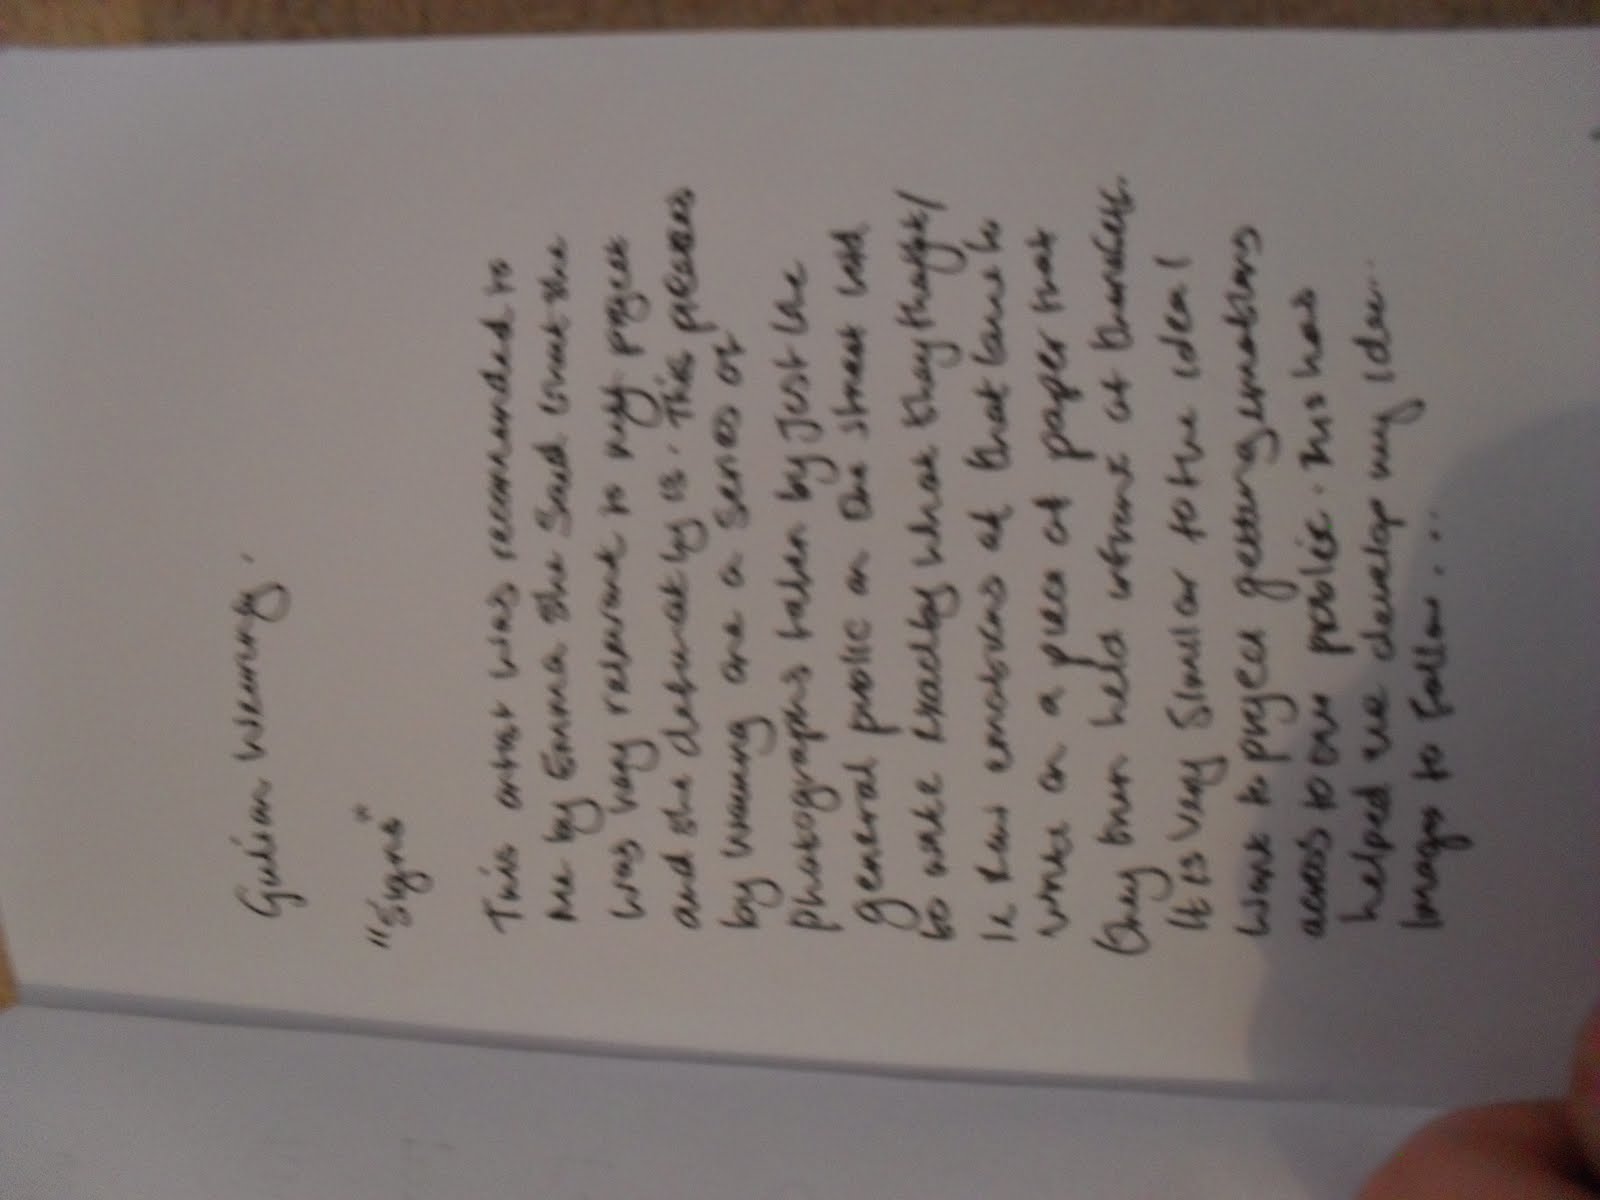 Gulian Wearing.
"Signs"
This artist was recommended to
me by Emma she said that she
was very relevant to my project
and she definetly is. This pieces
by Wearing are a series of
photographs taken by just the
general public on the street told
to write exactly what they thought/
raw emotions at that time to
write on a piece of paper that
they then held infront of themselfs.
It is very similar to the idea I
want to project getting emotions
across to our public. This has
helped me develop my idea..
Images to follow....